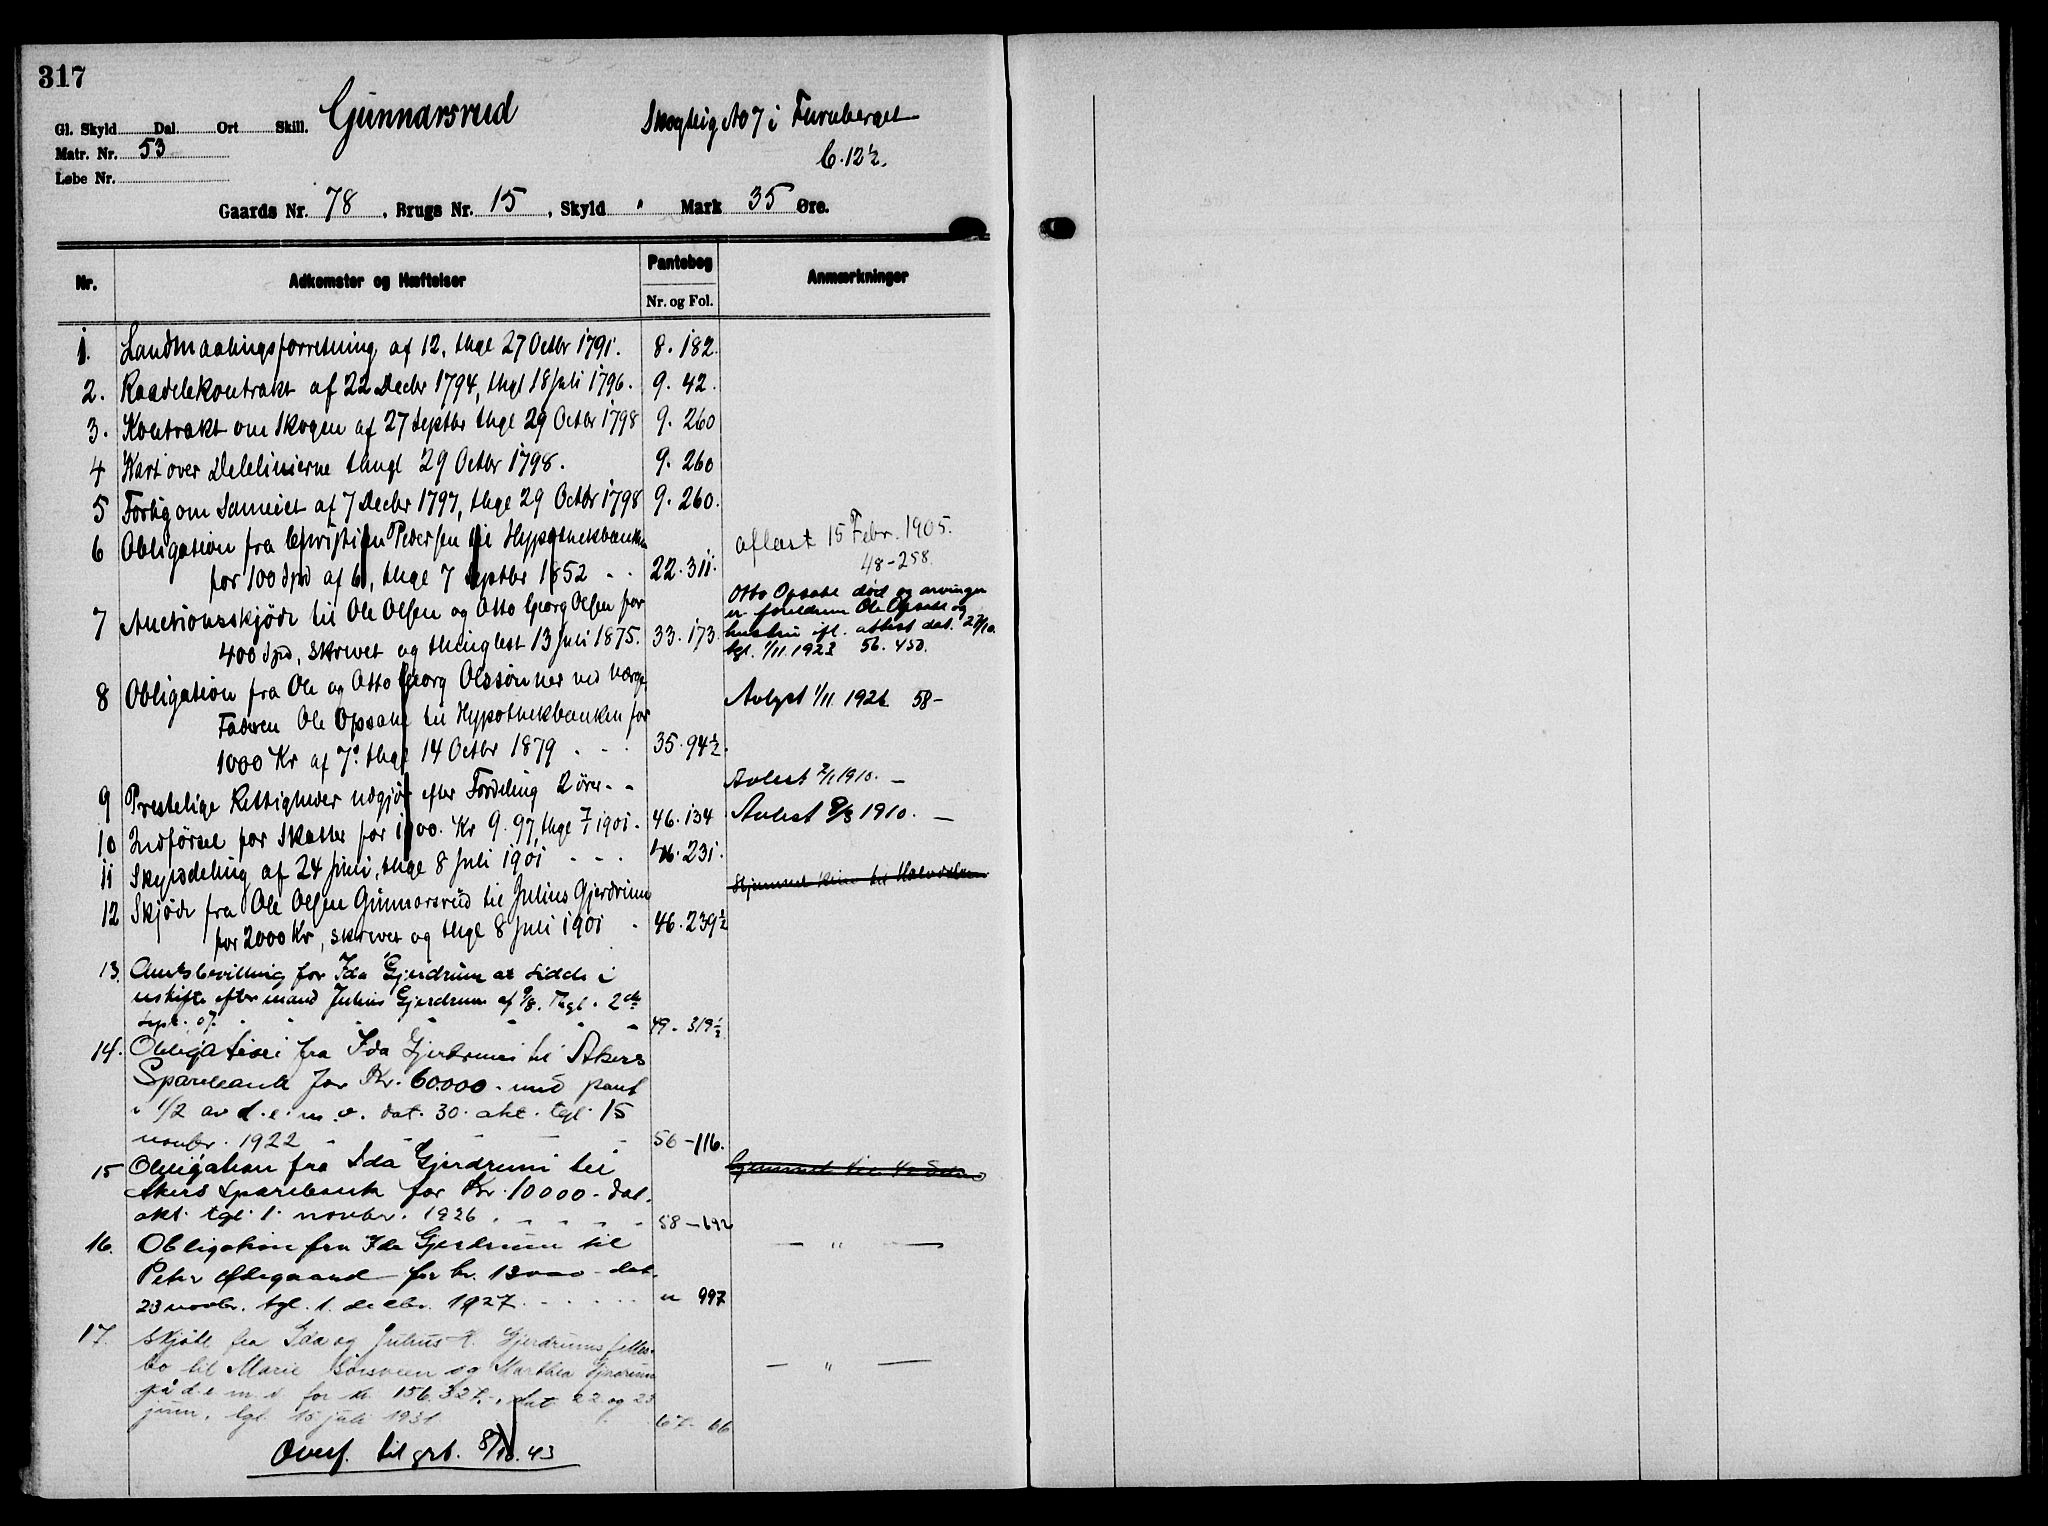 317
Gunnarsrud
Skogteig No 7 i Furuberget
C. 12½.
Gl. Skyld Dal. Ort Skill.
Matr. Nr. 53
Løbe Nr.
Gaards Nr. 78, Brugs Nr. 15, Skyld " Mark 35 Øre.
Nr. Adkomster og Hæftelser Pantebog Anmærkninger
Nr. og Fol.
1. Landmaalingsforretning af 12, thgl 27 Octbr 1791. 8. 182.
2. Raadelekontrakt af 22 Decbr 1794, thgl 18 Juli 1796. 9. 42.
3. Kontrakt om Skogen af 27 Septbr thgl 29 Octbr 1798 9. 260
4 Kart over Delelinierne thngl 29 Octbr 1798. 9. 260
5 Forlig om Sameiet af 7 Decbr 1797, thgl 29 Octbr 1798 9. 260.
6 Obligation fra Christian Pedersen til Hypothekbanken
for 100 Spd af 6, thgl 7 Septbr 1852 22. 311.
aflæst 15 Febr. 1905.
48-258.
7 Auctionsskjøde til Ole Olsen og Otto Georg Olsen for
400 Spd, skrevet og thinglest 13 Juli 1875. 33. 173.
Otto Opsahl død og arvinger
er foreldrene Ole Opsahl og
hustru ifl. attest dat. 27/10.
tgl. 1/11. 1923 56. 450.
8 Obligation fra Ole og Otto Georg Olssønner ved værge
Faderen Ole Opsahl til Hypothekbanken for
1000 Kr af 7. thgl 14 Octbr 1879 35. 94½.
Avlyst 1/11 1926 58-
9 Prestelige Rettigheder udgjør efter Fordeling 2 öre
Avlest 7/1 1910. -
10 Indførsel for Skatter for 1900. Kr 9.97, thgl 7/1 1901. 46. 134
Avlest 8/3 1910. -
11 Skylddeling af 24 Juni, thgl 8 Juli 1901 46. 231.
12 Skjöde fra Ole Olsen Gunnarsrud til Julius Gjerdrum
for 2000 Kr, skrevet og thgl 8 Juli 1901 46. 239½
Hjemmel kun til Halvdelen
13. Amtsbevilling for Ida Gjerdrum at sidde i
uskifte efter mand Julius Gjerdrum af 9/8. Thgl. 2den
Sept. 07. 49. 319½
14. Obligation fra Ida Gjerdrum til Akers
Sparebank for Kr. 60.000. med pant
i 1/2 av d.e.m.v. dat. 30. okt. tgl. 15
novbr. 1922 56-116.
15 Obligation fra Ida Gjerdrum til
Akers Sparebank for Kr. 10000- dat.
okt. tgl. 1. novbr. 1926. 58-692
16. Obligation fra Ida Gjerdrum til
Peter Ødegaard for kr. 13000- dat.
23 novbr. tgl. 1. decbr. 1927. " 997
- " -
17. Skjøte fra Ida og Julius H. Gjerdrums felles-
bo til Marie Sørsveen og Marthea Gjerdrum
på d.e.m.v. for kr. 156.327.-, dat 22 og 23
juni, tgl. 15 juli 1931. 67. 66
- " -
Overf. til grb. 8/10. 43